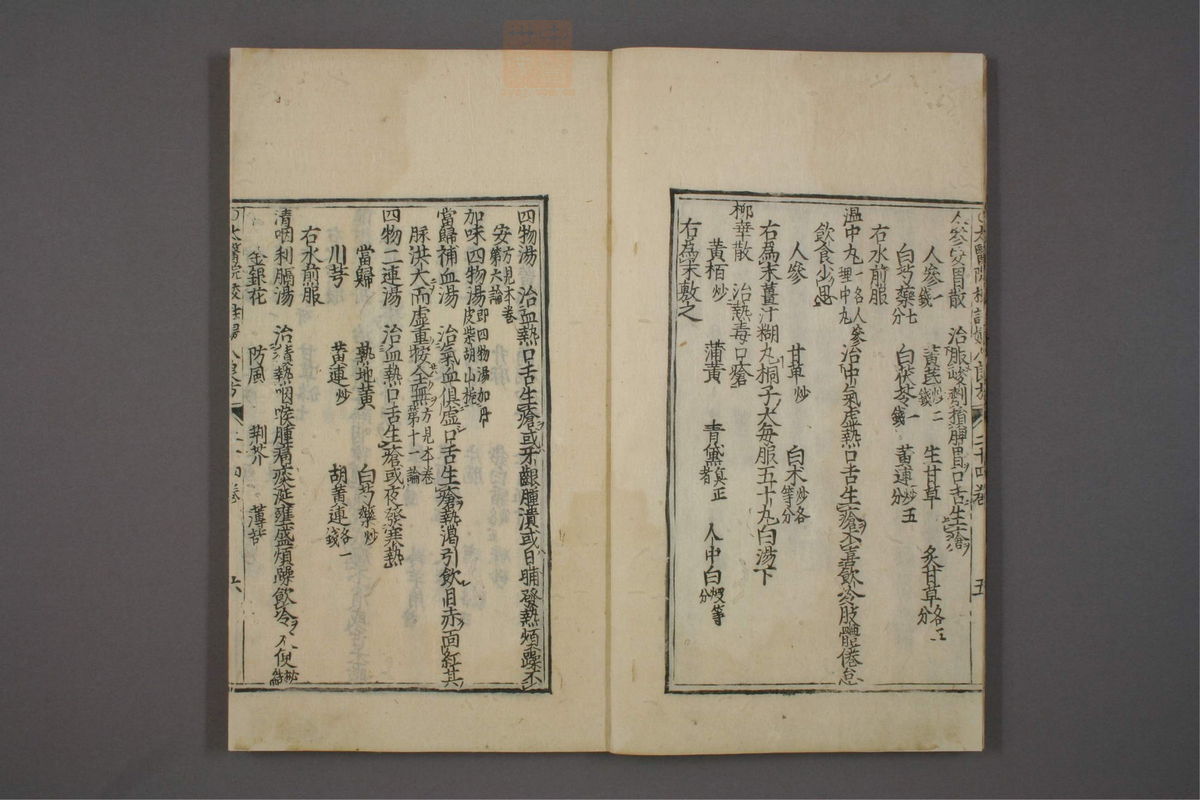 太醫院校註婦人良方 二十四卷 五
人參安胃散 治服峻劑損脾胃口舌生瘡
人參一錢 黃芪炒二錢 生甘草 炙甘草各五分
白芍藥七分 白茯苓一錢 黃連炒五分
右水煎服
溫中丸一名人參理中丸 治中氣虛熱口舌生瘡不喜飲冷肢體倦怠
飲食少思
人參 甘草炒 白朮炒各等分
右為末薑汁糊丸桐子大每服五十丸白湯下
柳華散 治熱毒口瘡
黃栢炒 蒲黃 青黛真正者 人中白煅等分
右為末敷之
四物湯 治血熱口舌生瘡或牙齦腫潰或日晡發熱煩躁不
安方見本卷第六論
加味四物湯即四物湯加丹皮柴胡山梔
當歸補血湯 治氣血俱虛口舌生瘡熱渴引飲目赤面紅其
脉洪大而虛重按全無方見本卷第十一論
四物二連湯 治血熱口舌生瘡或夜發寒熱
當歸 熟地黃 白芍藥炒
川芎 黃連炒 胡黃連各一錢
右水煎服
清咽利膈湯 治積熱咽喉腫痛痰涎壅盛煩躁飲冷大便秘結
金銀花 防風 荊芥 薄荷
太醫院校註婦人良方 二十四卷 六